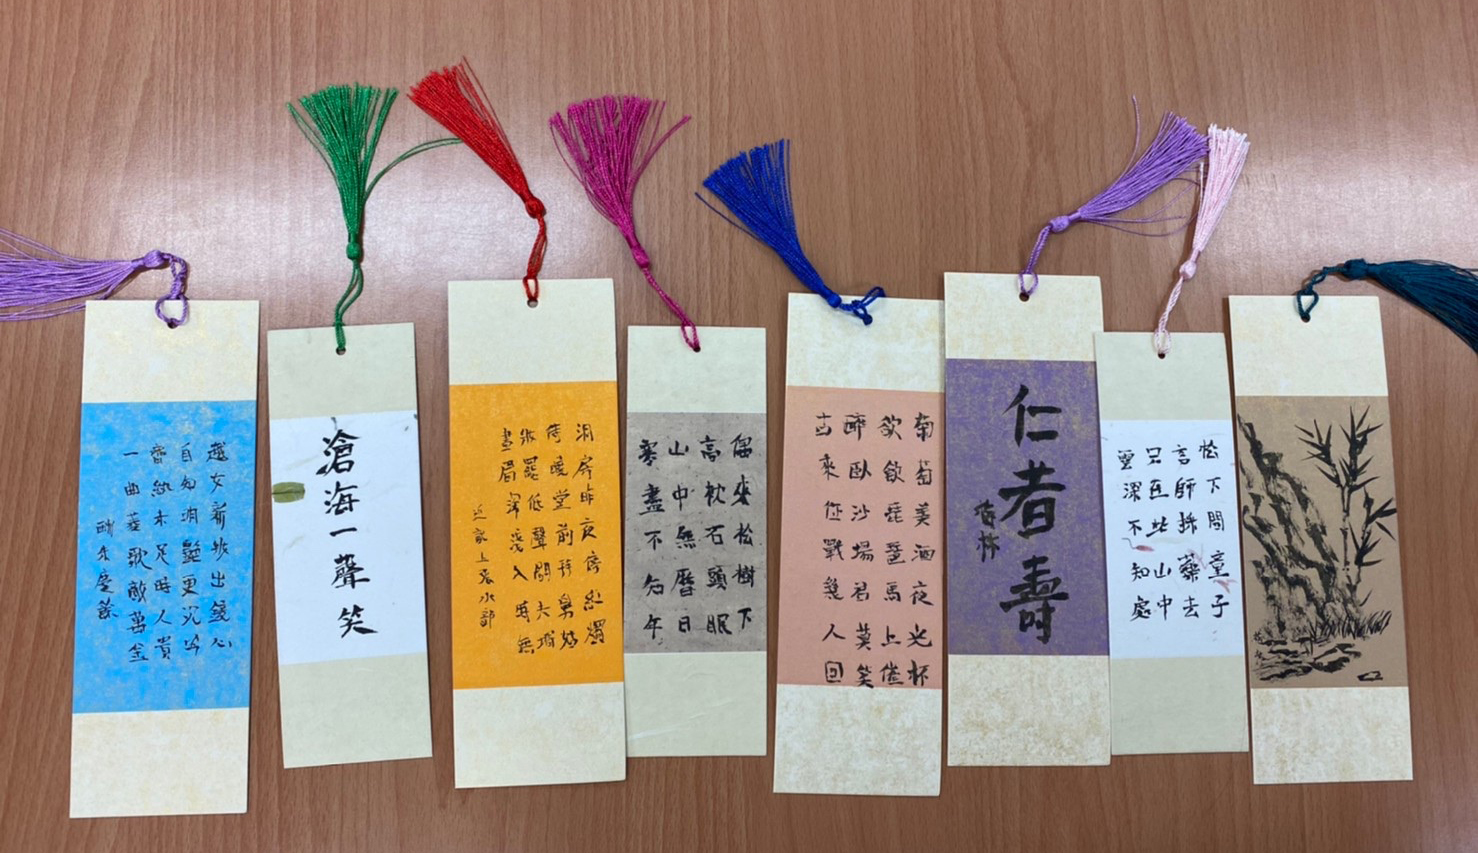 越女新妝出鏡心
自知明豔更沉吟
齊紈未足時人貴
一曲菱歌敵萬金
酬朱慶餘
滄海一聲笑
洞房昨夜停紅燭
待曉堂前拜舅姑
妝罷低聲問夫壻
畫眉深淺入時無
近試上張水部
偶來松樹下
高枕石頭眠
山中無曆日
寒盡不知年
葡萄美酒夜光杯
欲飲琵琶馬上催
醉臥沙場君莫笑
古來征戰幾人回
仁者壽
松下問童子
言師採藥去
只在此山中
雲深不知處